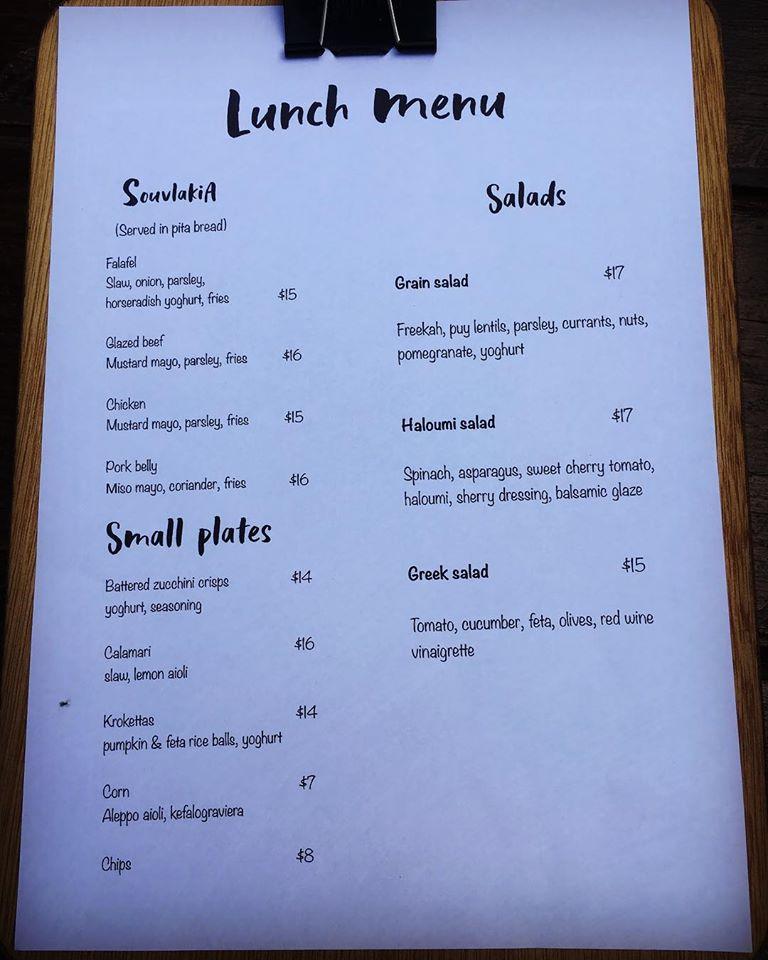 Lunch menu
SouvlakiA
(Served in pita bread)
Falafel
Slaw, onion, parsley,
horseradish yoghurt, fries $15
Glazed beef
Mustard mayo, parsley, fries $16
Chicken
Mustard mayo, parsley, fries $15
Pork belly
Miso mayo, coriander, fries $16
Small plates
Battered zucchini crisps $14
yoghurt, seasoning
Calamari $16
slaw, lemon aioli
Krokettas $14
pumpkin & feta rice balls, yoghurt
Corn $7
Aleppo aioli, kefalograviera
Chips $8
Salads
Grain salad $17
Freekah, puy lentils, parsley, currants, nuts,
pomegranate, yoghurt
Haloumi salad $17
Spinach, asparagus, sweet cherry tomato,
haloumi, sherry dressing, balsamic glaze
Greek salad $15
Tomato, cucumber, feta, olives, red wine
vinaigrette